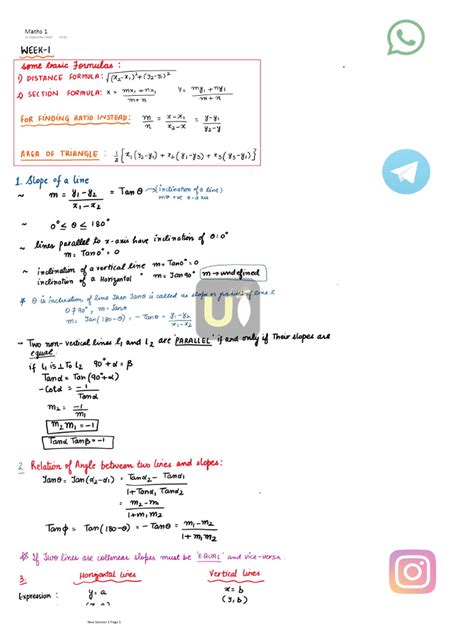 Maths 1
WEEK-1
Some basic Formulas :
1) DISTANCE FORMULA: √(x₂-x₁)²+(y₂-y₁)²
2) SECTION FORMULA: x = mx₂+nx₁ / m+n   y = my₂+ny₁ / m+n
FOR FINDING RATIO INSTEAD: m/n = x-x₁ / x₂-x = y-y₁ / y₂-y
AREA OF TRIANGLE :
1. Slope of a line
~ m = y₁-y₂ / x₁-x₂ = Tanθ → (inclination of a line)
~ 0° ≤ θ ≤ 180°
~ lines parallel to x-axis have inclination of θ=0°
m = Tan0° = 0
~ inclination of a vertical line m = Tan0° = 0
inclination of a Horizontal " m = Tan90° m → undefined
θ is inclination of line then Tanθ is called as slope or gradient of line l
θ ≠ 90°, m = Tanθ
m = Tan(180-θ) = -Tanθ = y₁-y₂ / x₁-x₂
~ Two non-vertical lines l₁ and l₂ are 'PARALLEL' if and only if Their slopes are
equal.
if l₁ is ⊥ To l₂ 90°+α = β
Tanα = Tan(90°+α)
-Cotα = -1 / Tanα
m₂ = -1 / m₁
m₂m₁ = -1
Tanα Tanβ = -1
2. Relation of Angle between two lines and slopes:
Tanθ = Tan(α₂-α₁) = Tanα₂ - Tanα₁ / 1+Tanα₁ Tanα₂
= m₂-m₁ / 1+m₁m₂
Tanϕ = Tan(180-θ) = -Tanθ = m₁-m₂ / 1+m₁m₂
If Two lines are collinear slopes must be 'EQUAL' and vice-versa.
3. Horizontal lines Vertical lines
Expression : y = a x = b
(x, a) (y, b)